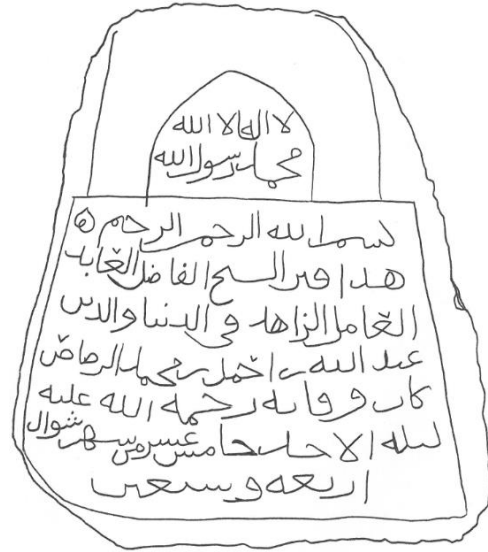 لا اله الا الله
محمد رسول الله
بسم الله الرحمن الرحيم ه
هذا قبر الشيخ الفاضل العابد
العامل الزاهد في الدنيا والدين
عبد الله بن احمد بن محمد الرصاص
كان وفاته رحمه الله عليه
ليلة الاحد خامس عشر من شهر شوال
اربعة وسبعين